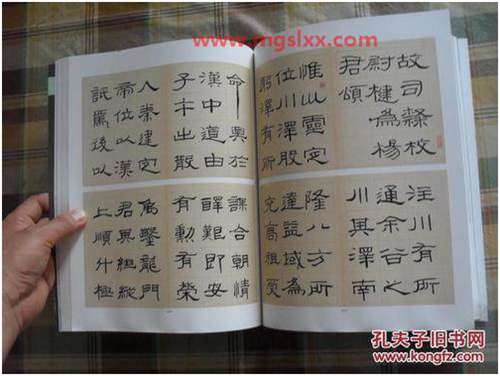 www.mgslxx.com
故司隸校
尉楗為楊
君頌
惟巛靈定
位川澤股
躬澤有所
注川有所
通余谷之
川其澤南
隆八方所
達益域為
充高祖受
命興於
漢中道由
子午出散
入秦建定
帝位以漢
詆焉後以
課合朝情
釋艱即安
有勳有榮
禹鑿龍門
君其繼縱
上順斗極
孔夫子旧书网
www.kongfz.com